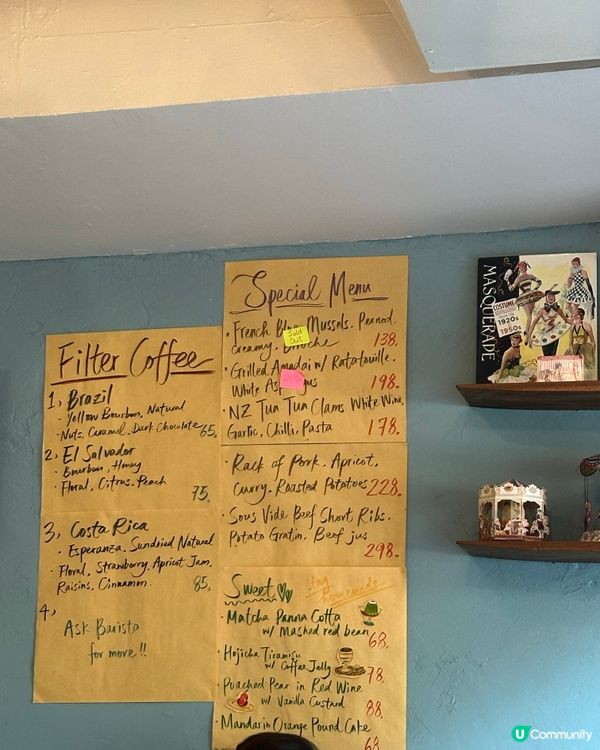 Filter Coffee
1, Brazil
- Yellow Bourbon, Natural
- Nuts, Caramel, Dark Chocolate 65.
2, El Salvador
- Bourbon, Honey
- Floral, Citrus, Peach 75.
3, Costa Rica
- Esperanza, Sundried Natural
- Floral, Strawberry, Apricot Jam,
Raisins, Cinnamon. 85.
4,
Ask Barista
for more!!
Special Menu
Sold Out
- French Blue Mussels. Pernod,
creamy. 138.
- Grilled Amadai w/ Ratatouille.
White 198.
- NZ Tua Tua Clams. White Wine.
Garlic, Chilli, Pasta 178.
- Rack of Pork. Apricot.
Curry. Roasted Potatoes 228.
- Sous Vide Beef Short Ribs.
Potato Gratin. Beef jus
298.
Sweet
Homemade
- Matcha Panna Cotta
w/ Mashed red bean 68.
- Hojicha Tiramisu
w/ Coffee Jelly 78.
- Poached Pear in Red Wine
w/ Vanilla Custard 88.
- Mandarin Orange Pound Cake
68
MASQUERADE
COSTUME
1920s
1950s
U Community